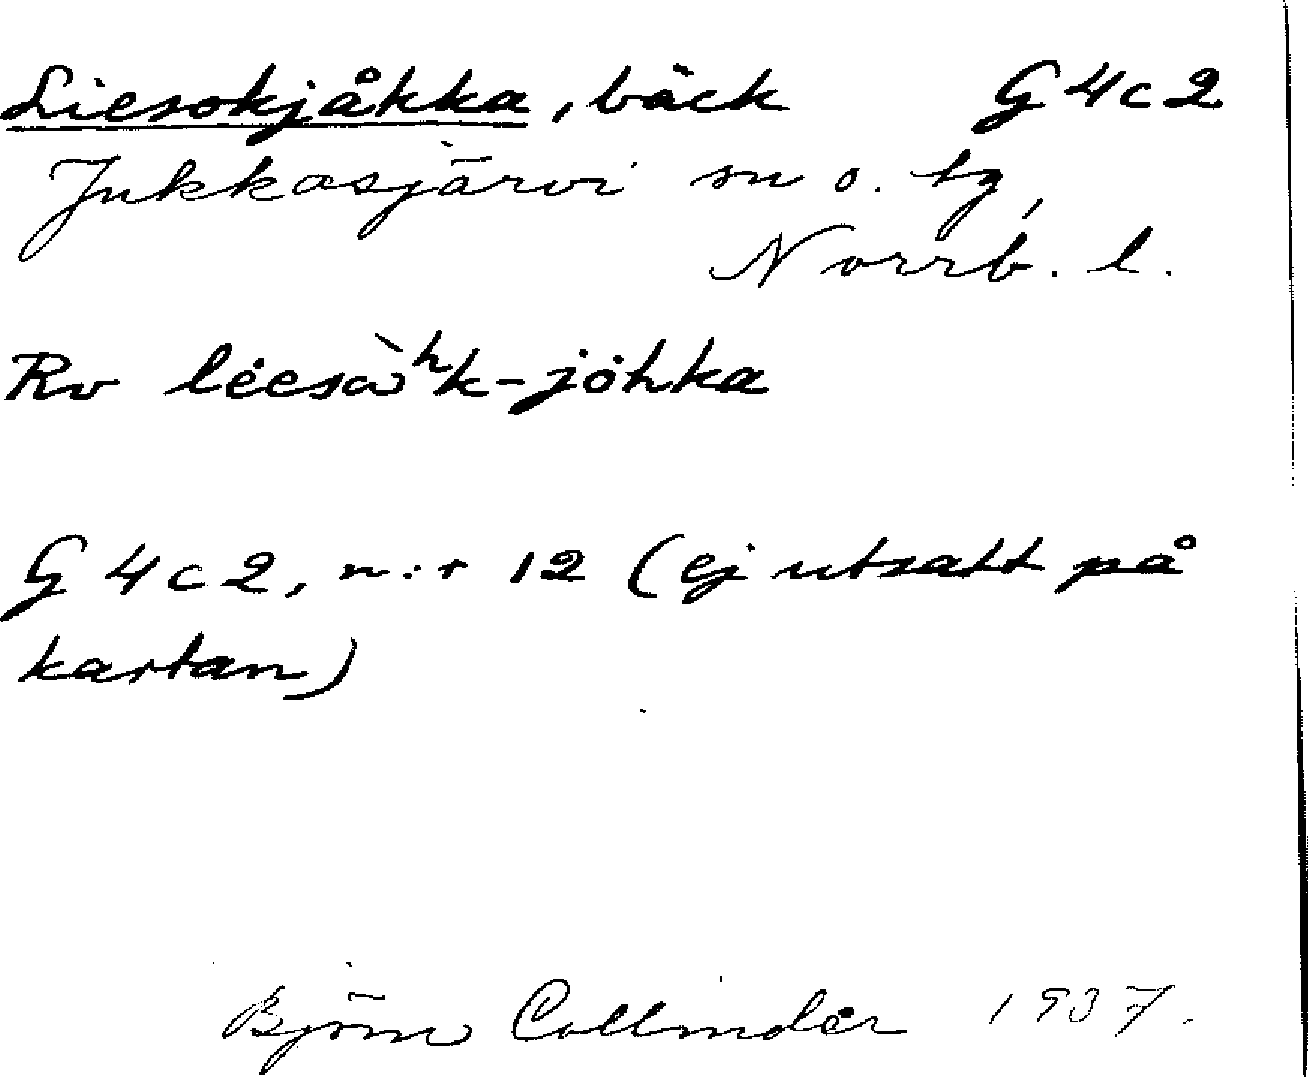 Liesokjåkka, bäck G4c2
Jukkasjärvi sn o. tg,
Norrb. l.
Rv lėesàʰk-jȯhka
G4c2, n:r 12 (ej utsatt på
kartan)
Björn Collinder 1937.